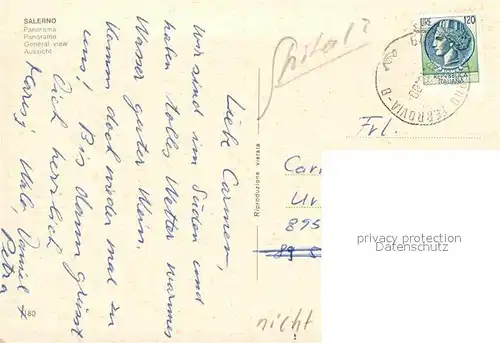 SALERNO
Panorama
Panorama
General view
Aussicht
Liebe Carmen,
wir sind im Süden und
haben tolles Wetter warmes
Wasser guter Wein.
Komm doch wieder mal zu
uns! Bis dann grüsst
Dich herzlich
Petra
80
Riproduzione vietata
Spital?
LIRE 120
REPUBBLICA
ITALIANA
FERROVIA-B
Frl.
Car
Ur
895
89
nicht
privacy protection
VERIFIED CARDS